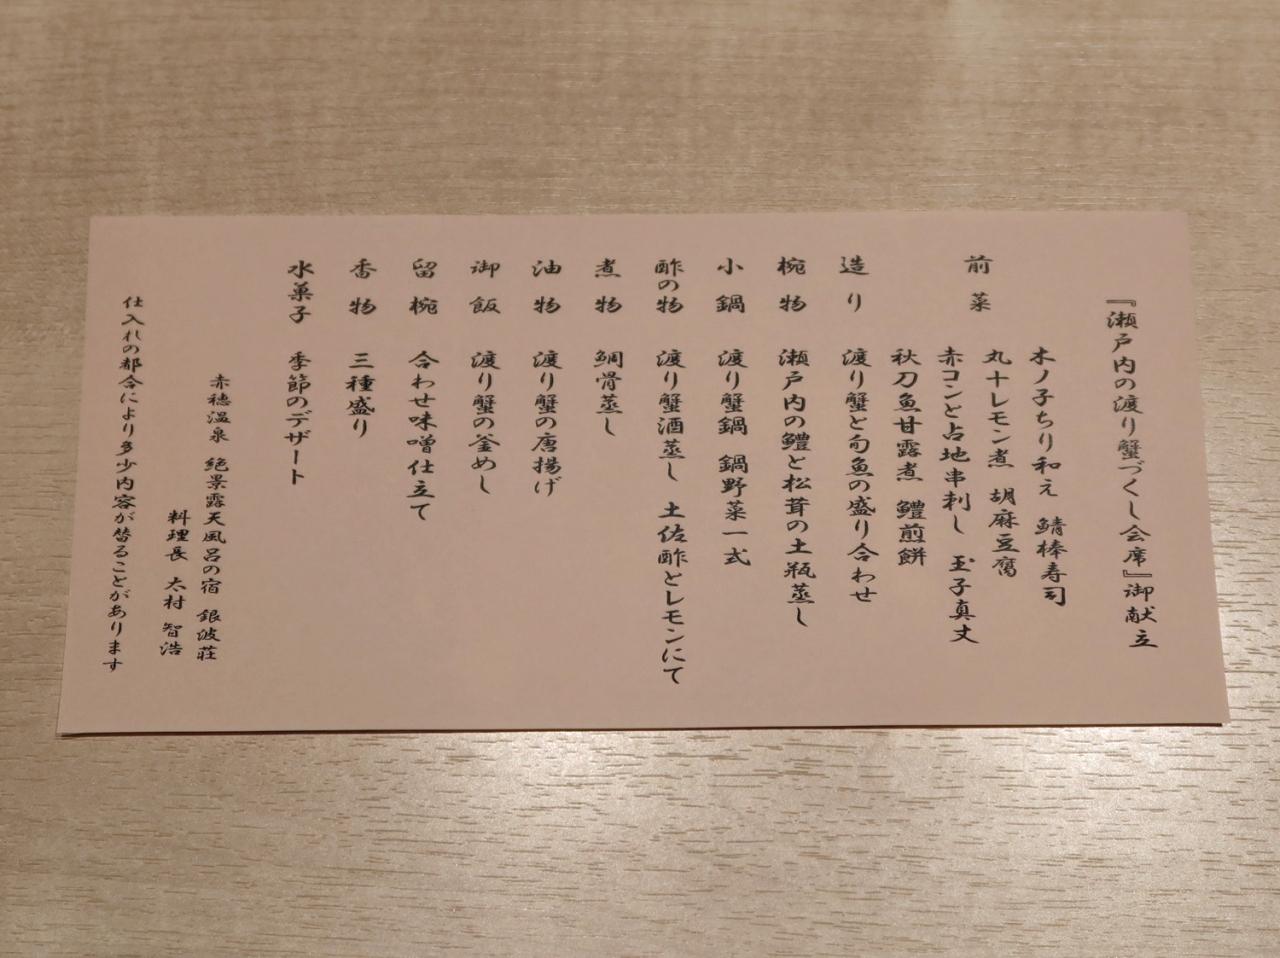 『瀬戸内の渡り蟹づくし会席』御献立
前菜 木ノ子ちり和え 鯖棒寿司
丸十レモン煮 胡麻豆腐
赤コンと占地串刺し 玉子真丈
秋刀魚甘露煮 鱧煎餅
造り 渡り蟹と旬魚の盛り合わせ
椀物 瀬戸内の鱧と松茸の土瓶蒸し
小鍋 渡り蟹鍋 鍋野菜一式
酢の物 渡り蟹酒蒸し 土佐酢とレモンにて
煮物 鯛骨蒸し
油物 渡り蟹の唐揚げ
御飯 渡り蟹の釜めし
留椀 合わせ味噌仕立て
香物 三種盛り
水菓子 季節のデザート
赤穂温泉 絶景露天風呂の宿 銀波荘
料理長 太村 智浩
仕入れの都合により多少内容が替ることがあります